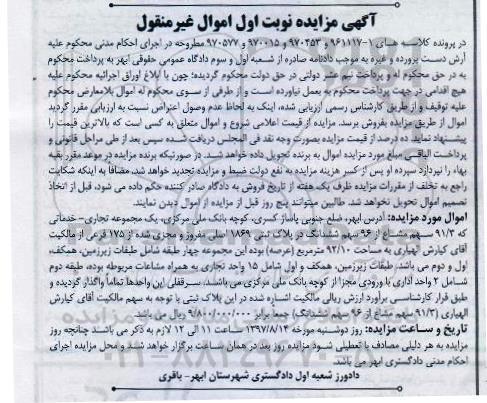 آگهی مزایده نوبت اول اموال غیر منقول
در پرونده کلاسه های ۹۶۱۱۱۷-۱ و ۹۷۰۴۵۳ و ۹۷۰۰۱۵ و ۹۷۰۵۷۷ مطروحه در اجرای احکام مدنی محکوم علیه
آرش دست پرورده و غیره به موجب دادنامه صادره از شعبه اول و سوم دادگاه عمومی حقوقی ابهر به پرداخت محکوم
به در حق محکوم له و پرداخت نیم عشر دولتی در حق دولت محکوم گردیده؛ چون با ابلاغ اوراق اجرائیه محکوم علیه
هیچ اقدامی در جهت پرداخت محکوم به بعمل نیاورده است و از طرفی از سوی محکوم له اموال بلامعارض محکوم
علیه توقیف و از طریق کارشناس رسمی ارزیابی شده، اینک به لحاظ عدم وصول اعتراض نسبت به ارزیابی مقرر گردید
اموال از طریق مزایده بفروش برسد. مزایده از قیمت اعلامی شروع و اموال متعلق به کسی است که بالاترین قیمت را
پیشنهاد نماید ده درصد از قیمت مزایده بصورت وجه نقد فی المجلس دریافت شده سپس بعد از طی مراحل قانونی و
پرداخت الباقی مبلغ مورد مزایده اموال به برنده تحویل داده خواهد شد. در صورتیکه برنده مزایده در موعد مقرر بقیه
بهاء را نپردازد سپرده او پس از کسر هزینه مزایده به نفع دولت ضبط و مزایده تجدید خواهد شد. مضافاً به اینکه شکایت
راجع به تخلف از مقررات مزایده ظرف یک هفته از تاریخ فروش به دادگاه صادر کننده حکم داده می شود، قبل از اتخاذ
تصمیم اموال تحویل نخواهد شد. طالبین میتوانند پنج روز قبل از مزایده از اموال دیدن نمایند.
اموال مورد مزایده: آدرس ابهر، ضلع جنوبی پاساژ کسری، کوچه بانک ملی مرکزی، یک مجموعه تجاری- خدماتی
که ۹۱/۳ سهم مشاع از ۹۶ سهم ششدانگ در پلاک ثبتی ۱۸۶۹ اصلی مفروز و مجزی شده از ۱۷۵ فرعی از مالکیت
آقای کیارش الهیاری به مساحت ۹۲/۱۰ مترمربع (عرصه) بوده این مجموعه چهار طبقه شامل طبقات زیرزمین، همکف،
اول و دوم می باشد. طبقات زیرزمین، همکف و اول شامل ۱۵ واحد تجاری به همراه مشاعات مربوطه بوده، طبقه دوم
شامل ۲ واحد اداری با ورودی مجزا از کوچه بانک ملی مرکزی می باشند. سرقفلی این واحدها تماماً واگذار گردیده و
طبق قرار کارشناسی برآورد ارزش ریالی مالکیت اشاره شده در این پلاک ثبتی با توجه به سهم مالکیت آقای کیارش
الهیاری (۹۱/۳ سهم مشاع از ۹۶ سهم ششدانگ) جمعاً برابر ۹/۸۰۰/۰۰۰/۰۰۰ ریال می باشد.
تاریخ و ساعت مزایده: روز دوشنبه مورخه ۱۳۹۷/۸/۱۴ ساعت ۱۱ الی ۱۲ لازم به ذکر می باشد چنانچه روز
مزایده به هر دلیلی مصادف با تعطیلی شود مزایده روز بعد در همان ساعت برگزار خواهد شد و محل مزایده اجرای
احکام مدنی دادگستری ابهر می باشد.
دادورز شعبه اول دادگستری شهرستان ابهر- باقری